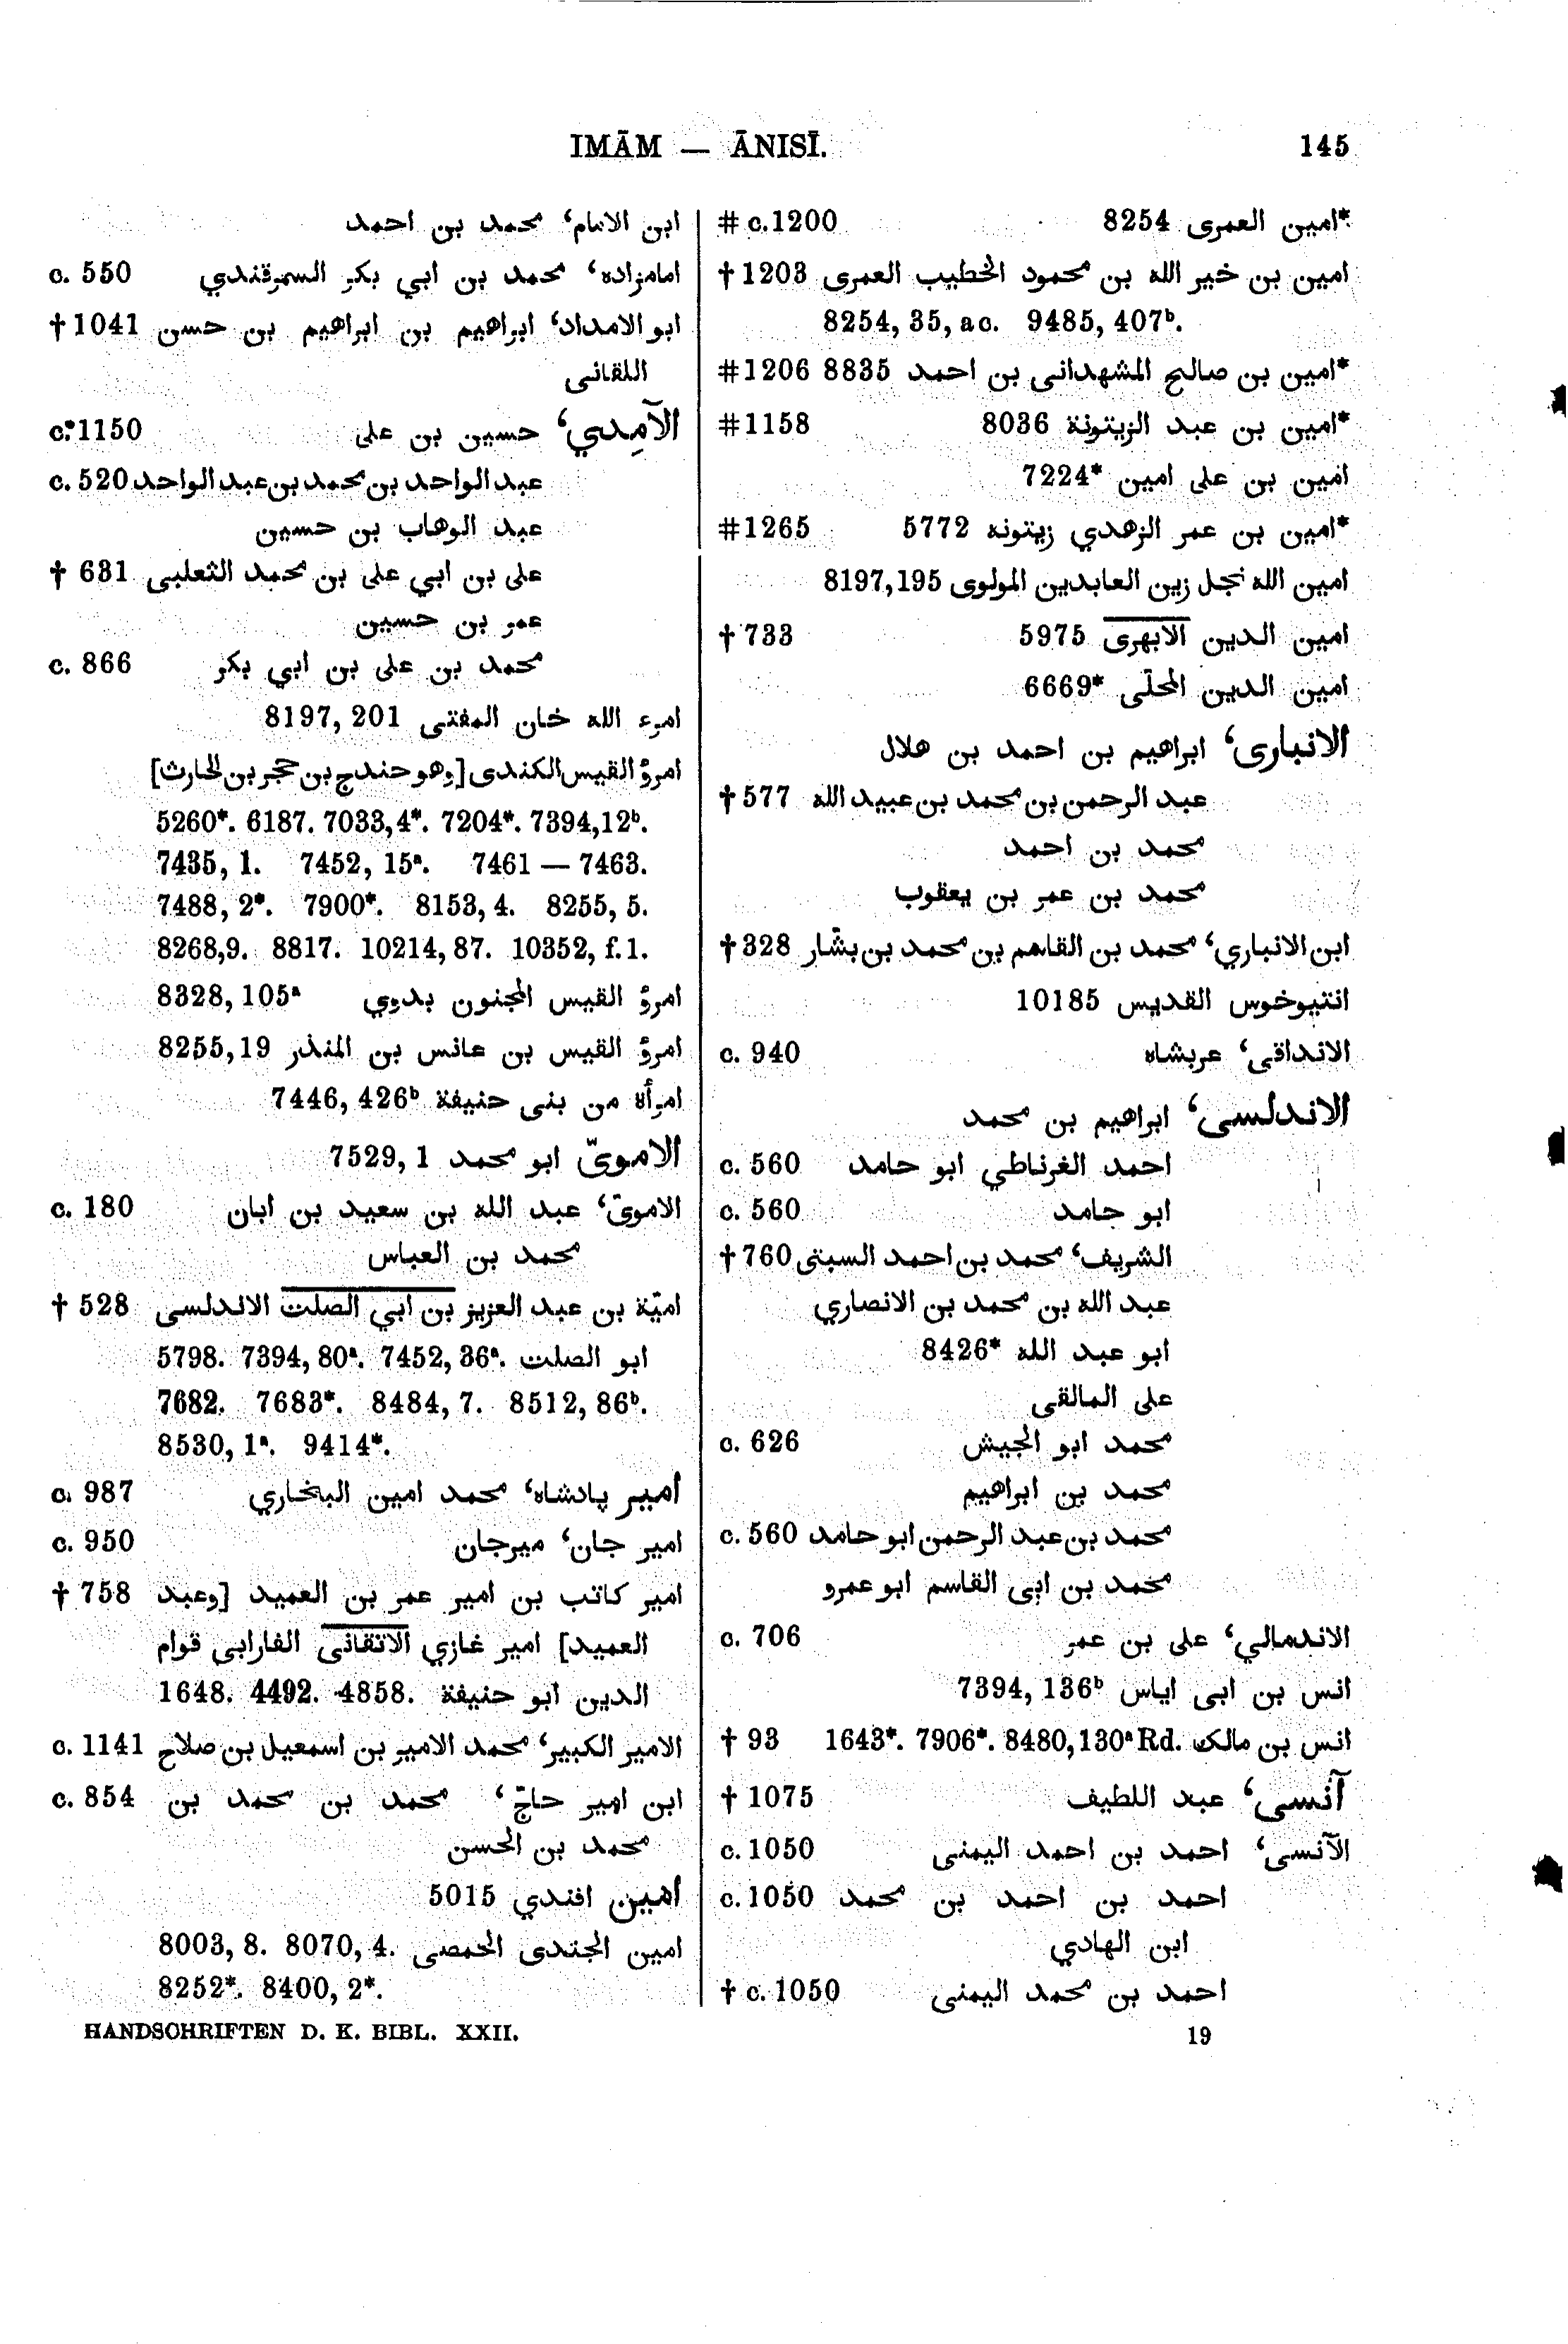 IMĀM — ĀNISĪ. 145
ابن الامام، محمد بن احمد
امامزاده، محمد بن ابي بكر السمرقندي c. 550
ابو الامداد، ابراهيم بن ابراهيم بن حسن † 1041
اللقانى
الآمِدي، حسين بن على c. 1150
عبد الواحد بن محمد بن عبد الواحد c. 520
عبد الوهاب بن حسين
على بن ابي على بن محمد الثعلبى † 631
عمر بن حسين
محمد بن على بن ابي بكر c. 866
امرء الله خان المفتى 8197, 201
امرؤ القيس الكندى [وهو حندج بن حجر بن الحارث]
5260*. 6187. 7033,4*. 7204*. 7394,12ᵇ.
7435, 1. 7452, 15ᵃ. 7461 — 7463.
7488, 2*. 7900*. 8153, 4. 8255, 5.
8268,9. 8817. 10214, 87. 10352, f. 1.
امرؤ القيس المجنون بدوي 8328, 105ᵃ
امرؤ القيس بن عانس بن المنذر 8255,19
امرأة من بنى حنيفة 7446, 426ᵇ
الاموىّ ابو محمد 7529, 1
الاموىّ، عبد الله بن سعيد بن ابان c. 180
محمد بن العباس
اميّة بن عبد العزيز بن ابي الصلت الاندلسى † 528
ابو الصلت 5798. 7394, 80ᵃ. 7452, 36ᵃ.
7682. 7683*. 8484, 7. 8512, 86ᵇ.
8530, 1ᵃ. 9414*.
أمير پادشاه، محمد امين البخاري c. 987
امير جان، ميرجان c. 950
امير كاتب بن امير عمر بن العميد [وعبد † 758
العميد] امير غازي الاتقانى الفارابى قوام
الدين ابو حنيفة 1648. 4492. 4858.
الامير الكبير، محمد الامير بن اسمعيل بن صلاح c. 1141
ابن امير حاجّ، محمد بن محمد بن c. 854
محمد بن الحسن
أمين افندي 5015
امين الجندى الحمصى 8003, 8. 8070, 4.
8252*. 8400, 2*.
*امين العمرى 8254 # c. 1200
امين بن خير الله بن محمود الخطيب العمرى † 1203
8254, 35, ac. 9485, 407ᵇ.
*امين بن صالح المشهدانى بن احمد 8835 # 1206
*امين بن عبد الزيتونة 8036 # 1158
امين بن على امين 7224*
*امين بن عمر الزهدي زيتونه 5772 # 1265
امين الله نجل زين العابدين المولوى 8197,195
امين الدين الابهرى 5975 † 733
امين الدين المحلّى 6669*
الانبارى، ابراهيم بن احمد بن هلال
عبد الرحمن بن محمد بن عبيد الله † 577
محمد بن احمد
محمد بن عمر بن يعقوب
ابن الانباري، محمد بن القاسم بن محمد بن بشّار † 328
انتيوخوس القديس 10185
الانداقى، عربشاه c. 940
الاندلسى، ابراهيم بن محمد
احمد الغرناطي ابو حامد c. 560
ابو حامد c. 560
الشريف، محمد بن احمد السبتى † 760
عبد الله بن محمد بن الانصاري
ابو عبد الله 8426*
على المالقى
محمد ابو الجيش c. 626
محمد بن ابراهيم
محمد بن عبد الرحمن ابو حامد c. 560
محمد بن ابى القاسم ابو عمرو
الاندمالي، على بن عمر c. 706
انس بن ابى اياس 7394, 136ᵇ
انس بن مالك 1643*. 7906*. 8480,130ᵃ Rd. † 93
آنسى، عبد اللطيف † 1075
الآنسى، احمد بن احمد اليمنى c. 1050
احمد بن احمد بن محمد c. 1050
ابن الهادي
احمد بن محمد اليمنى † c. 1050
HANDSCHRIFTEN D. K. BIBL. XXII. 19